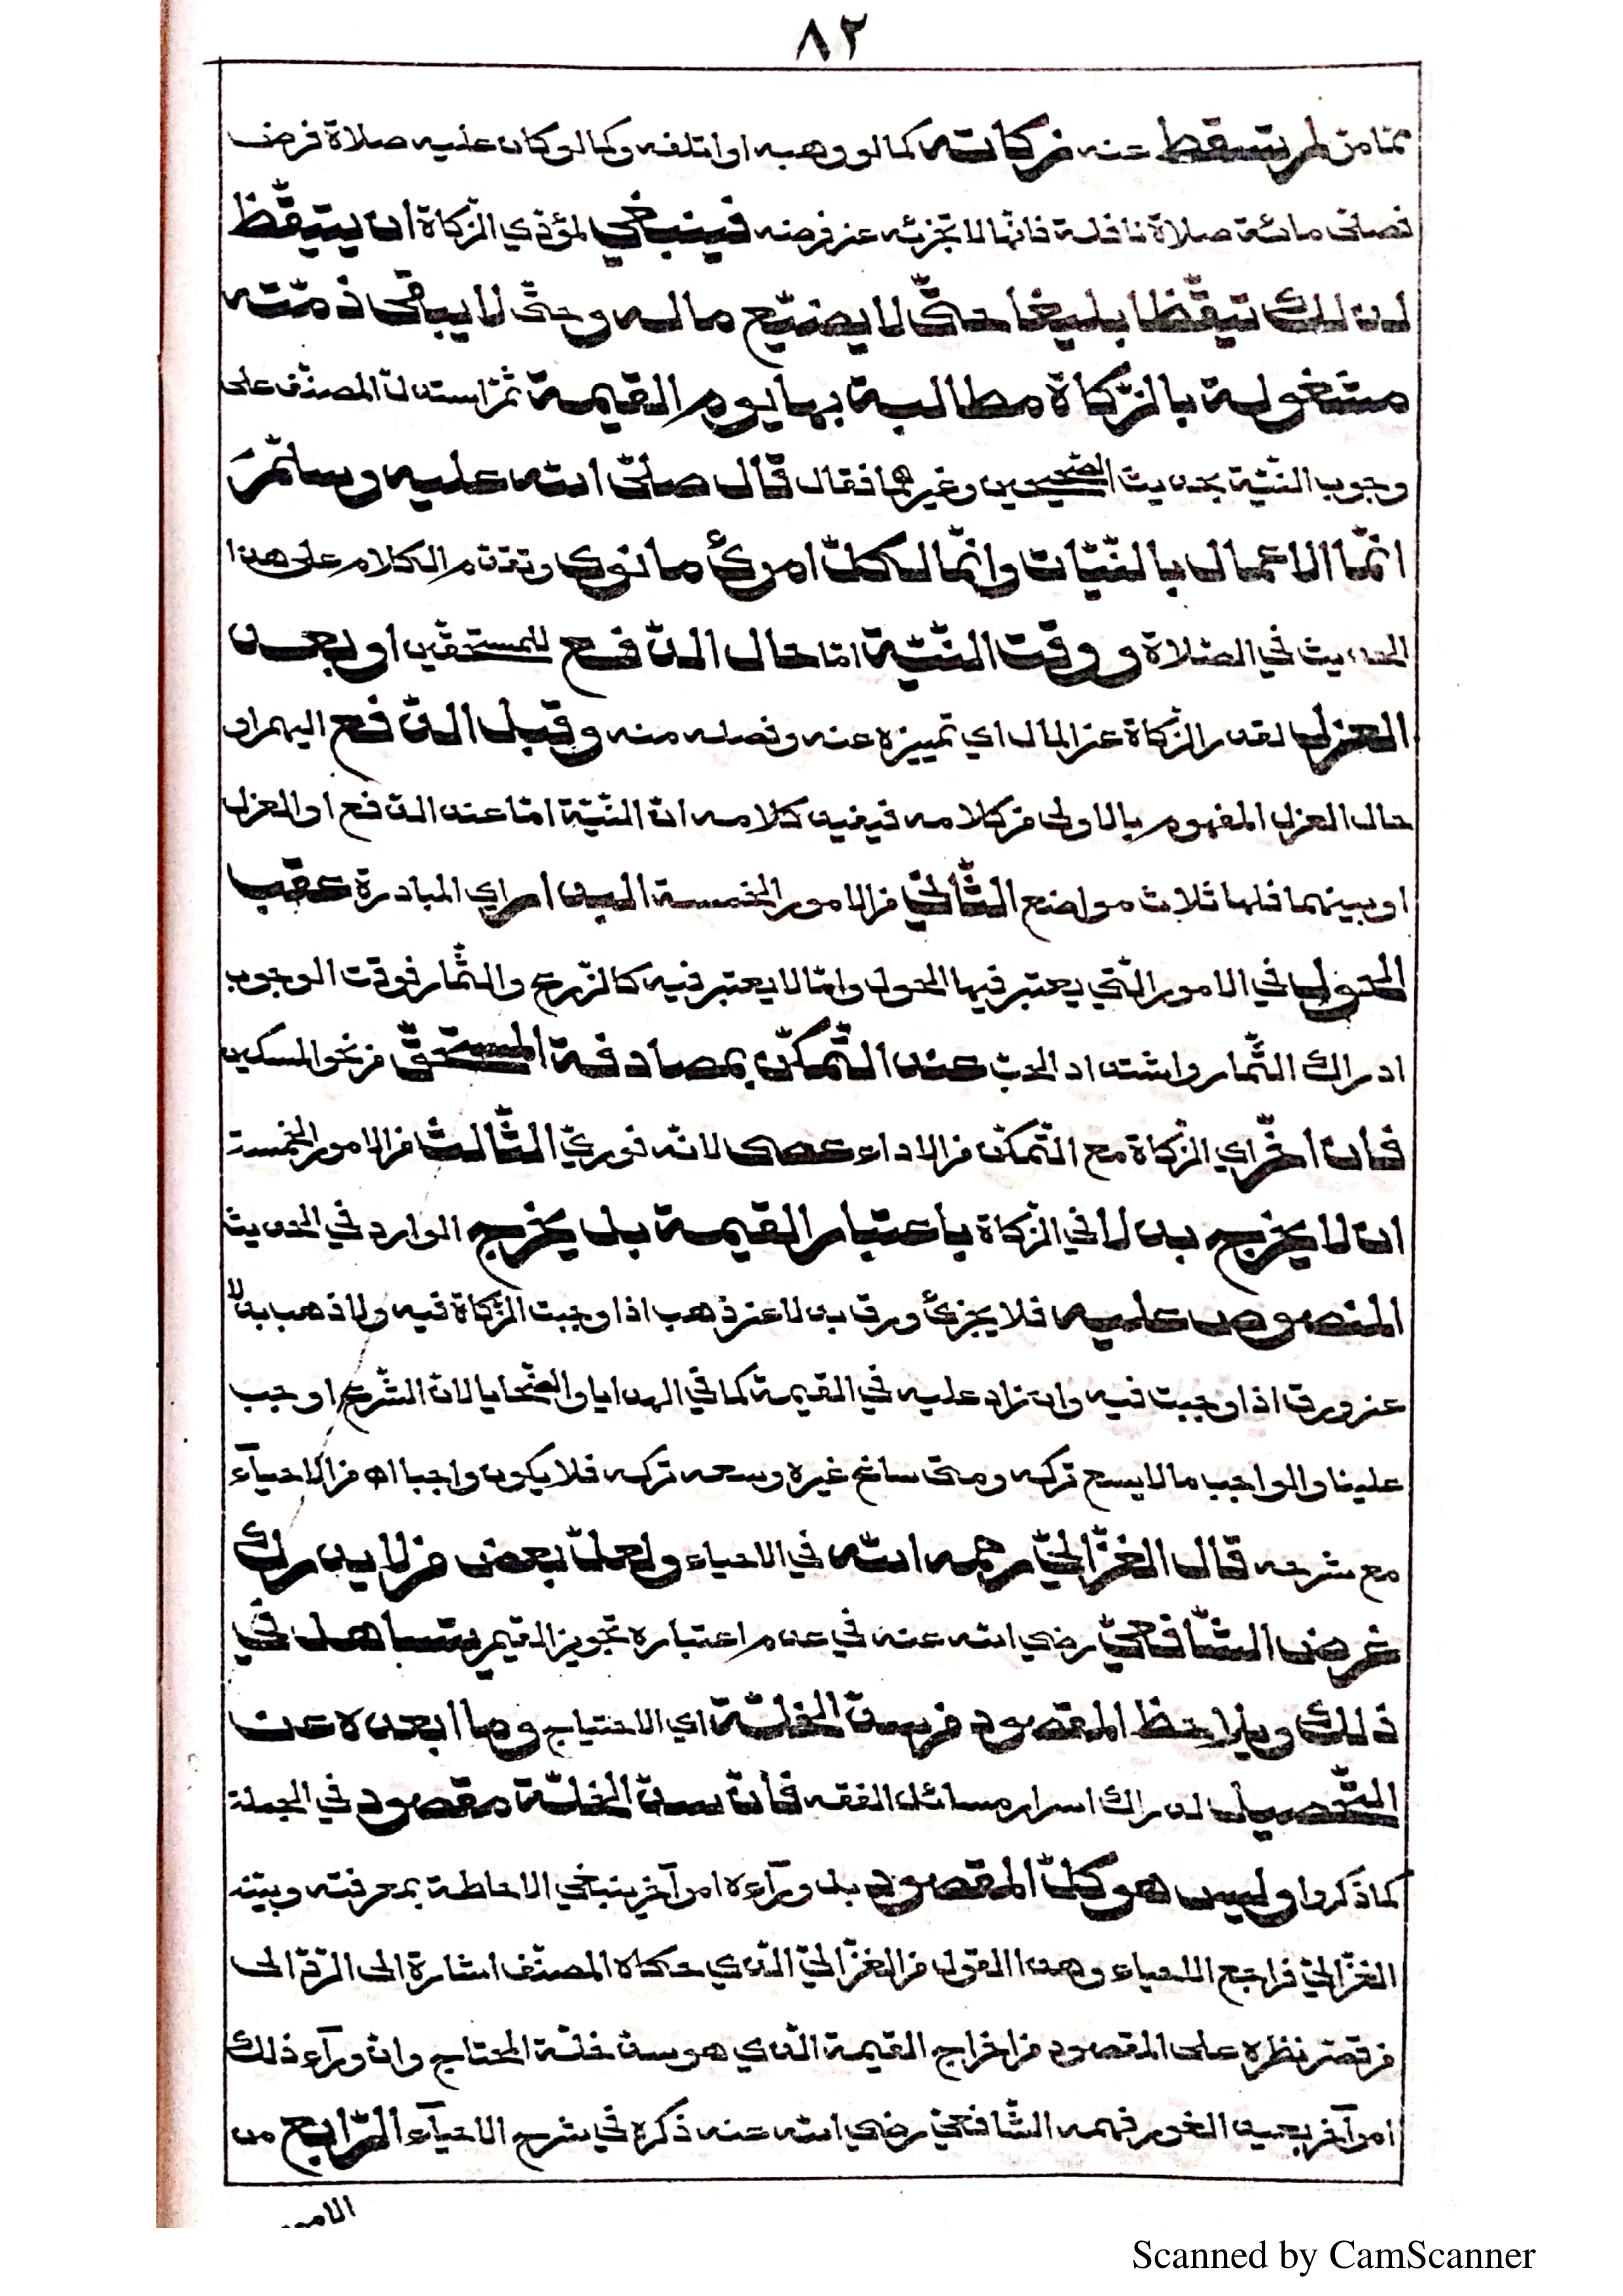 ٨٢
تمامن لم تسقط عنه زكاته كما لو وهبه او اتلفه وكما لو كان عليه صلاة فرض
فصلى مائة صلاة نافلة فانها لا تجزئه عن فرضه فينبغي لمؤدي الزكاة ان يتيقظ
لذلك تيقظا بليغا حتى لا يضيع ماله وحتى لا يبقى ذمته
مشغولة بالزكاة مطالبة بها يوم القيمة ثم استدل المصنف على
وجوب النية بحديث الصحيحين وغيرهما فقال قال صلى الله عليه وسلم
انما الاعمال بالنيات وانما لكل امرئ ما نوى وتقدم الكلام على هذا
الحديث في الصلاة ووقت النية اما حال الدفع للمستحقين او بعد
العزل لقدر الزكاة عن المال اي تمييزه عنه وفصله منه وقبل الدفع اليهم او
حال العزل المفهوم بالاولى من كلامه فيفيد كلامه ان النية اما عند الدفع او العزل
او بينهما فلها ثلاث مواضع الثاني من الامور الخمسة البدار اي المبادرة عقب
الحول في الامور التي يعتبر فيها الحول واما لا يعتبر فيه كالزرع والثمار فوقت الوجوب
ادراك الثمار واشتداد الحب عند التمكن بمصادفة المستحق من نحو المسكين
فان اخر اي الزكاة مع التمكن من الاداء عصى لانه فوري الثالث من الامور الخمسة
ان لا يخرج بدلا في الزكاة باعتبار القيمة بل يخرج الوارد في الحديث
المنصوص عليه فلا يجزئ ورق بدلا عن ذهب اذا وجبت الزكاة فيه ولا ذهب بدلا
عن ورق اذا وجبت فيه وان زاد عليه في القيمة كما في الهدايا والضحايا لان الشرع اوجب
علينا والواجب ما لا يسع تركه ومتى ساغ غيره وسعه تركه فلا يكون واجبا اه من الاحيآء
مع شرحه قال الغزالي رحمه الله في الاحياء ولعل بعض من لا يدرك
غرض الشافعي رضي الله عنه في عدم اعتباره تجويز القيم يتساهل في
ذلك ويلاحظ المقصود من سد الخلة اي الاحتياج وما ابعده عن
التحصيل لدراك اسرار مسائل الفقه فان سد الخلة مقصود في الجملة
كما ذكروا وليس هو كل المقصود بل ورآءه امر آخر ينبغي الاحاطة بمعرفته وبينه
الغزالي فراجع الاحياء وهذا القول من الغزالي الذي حكاه المصنف اشارة الى الرد الى
من قصر نظره على المقصود من اخراج القيمة الذي هو سد خلة المحتاج وان ورآء ذلك
امر آخر بعيد الغور فهمه الشافعي رضي الله عنه ذكره في شرح الاحيآء الرابع من
الامور
Scanned by CamScanner